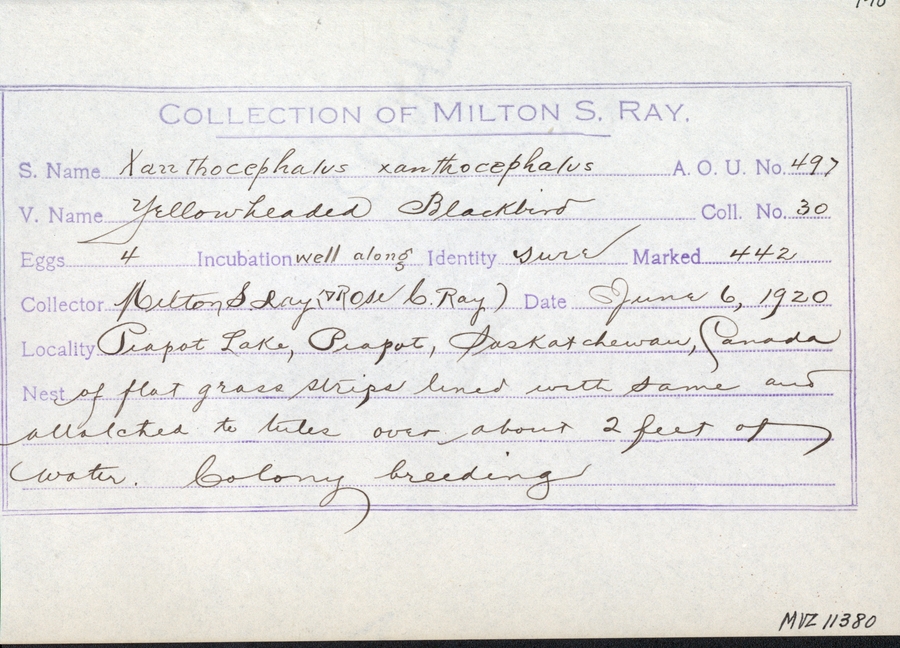 COLLECTION OF MILTON S. RAY.
S. Name Xanthocephalus xanthocephalus A. O. U. No. 497
V. Name Yellowheaded Blackbird Coll. No. 30
Eggs 4 Incubation well along Identity sure Marked 442
Collector Milton S. Ray (& Rose C. Ray) Date June 6, 1920
Locality Piapot Lake, Piapot, Saskatchewan, Canada
Nest of flat grass strips lined with same and
attatched to tules over about 2 feet of
water. Colony breeding
MVZ 11380